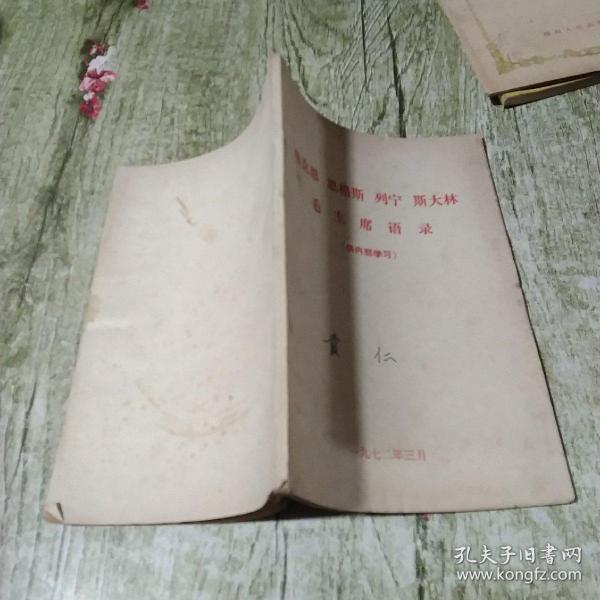 马克思 恩格斯 列宁 斯大林
毛主席语录
（供内部学习）
贵仁
一九七二年三月
孔夫子旧书网
www.kongfz.com